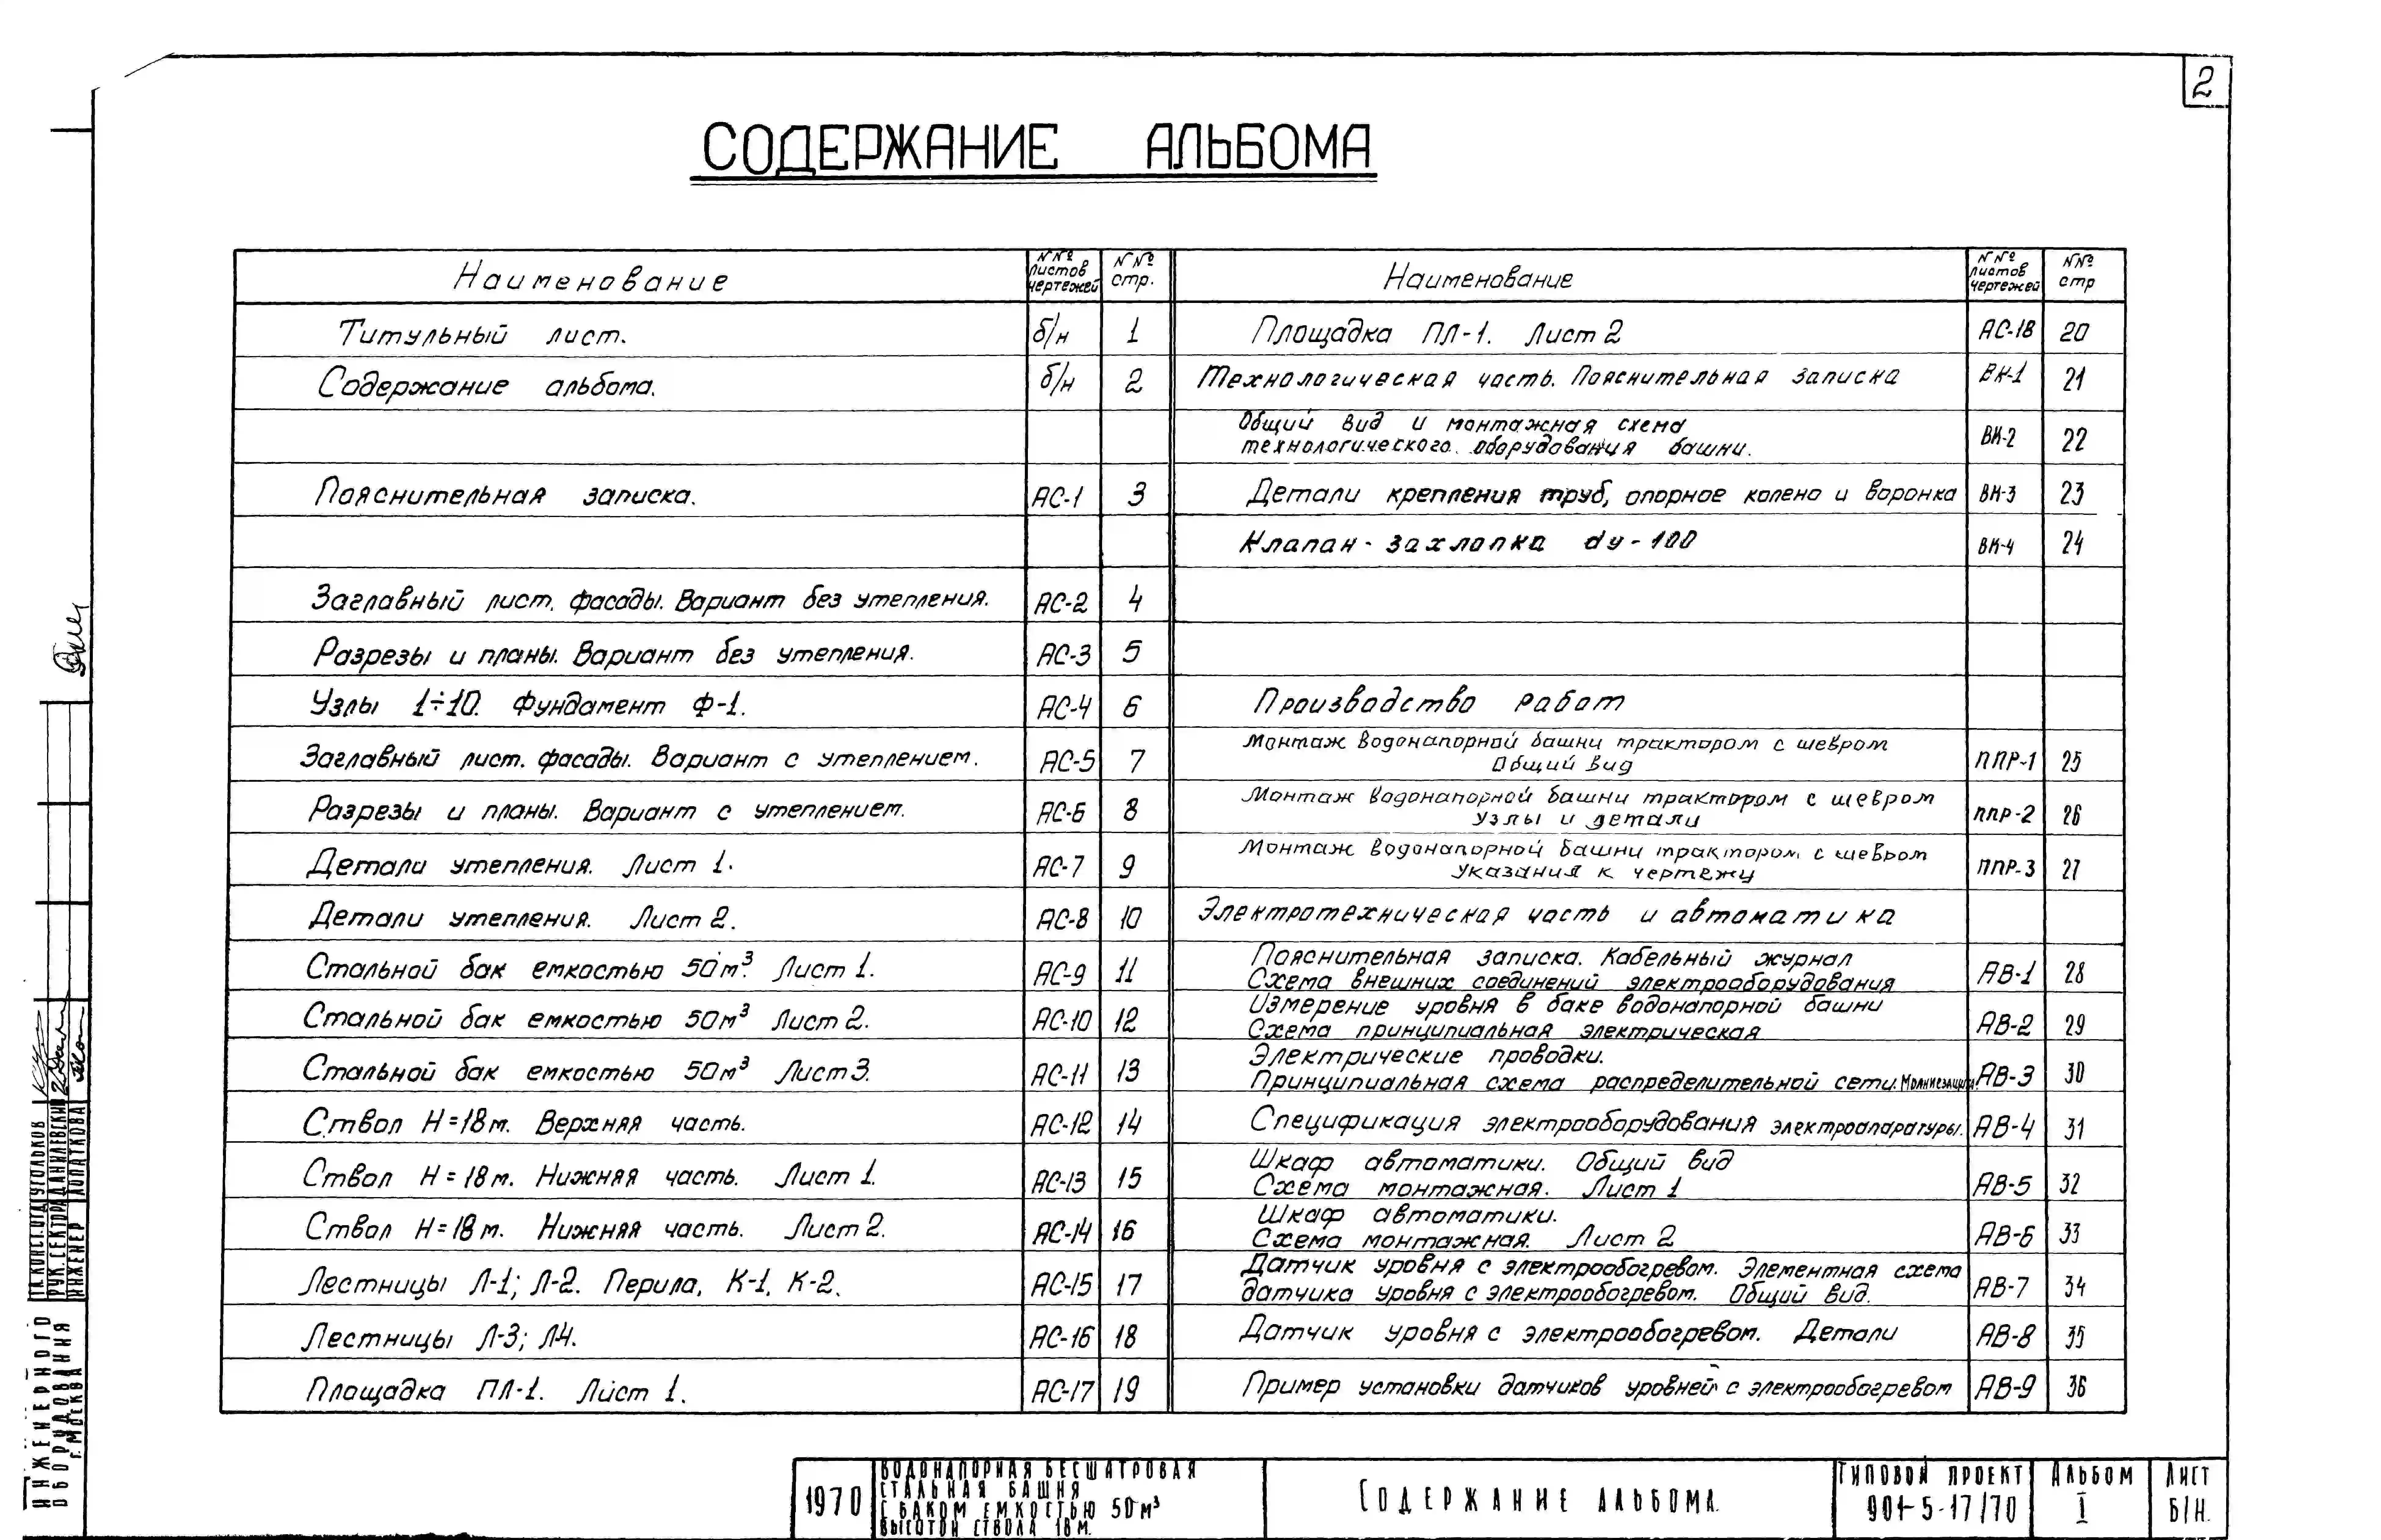 2
СОДЕРЖАНИЕ АЛЬБОМА
Наименование
№№ листов чертежей
№№ стр.
Титульный лист. б/н 1
Содержание альбома. б/н 2
Пояснительная записка. АС-1 3
Заглавный лист. фасады. Вариант без утепления. АС-2 4
Разрезы и планы. Вариант без утепления. АС-3 5
Узлы 1÷10. Фундамент Ф-1. АС-4 6
Заглавный лист. фасады. Вариант с утеплением. АС-5 7
Разрезы и планы. Вариант с утеплением. АС-6 8
Детали утепления. Лист 1. АС-7 9
Детали утепления. Лист 2. АС-8 10
Стальной бак емкостью 50м³. Лист 1. АС-9 11
Стальной бак емкостью 50м³ Лист 2. АС-10 12
Стальной бак емкостью 50м³ Лист 3. АС-11 13
Ствол Н=18м. Верхняя часть. АС-12 14
Ствол Н=18м. Нижняя часть. Лист 1. АС-13 15
Ствол Н=18м. Нижняя часть. Лист 2. АС-14 16
Лестницы Л-1; Л-2. Перила, К-1, К-2. АС-15 17
Лестницы Л-3; Л-4. АС-16 18
Площадка ПЛ-1. Лист 1. АС-17 19
Наименование
№№ листов чертежей
№№ стр
Площадка ПЛ-1. Лист 2 АС-18 20
Технологическая часть. Пояснительная записка ВК-1 21
Общий вид и монтажная схема
технологического оборудования башни. ВК-2 22
Детали крепления труб, опорное колено и воронка ВК-3 23
Клапан-захлопка dу-100 ВК-4 24
Производство работ
Монтаж водонапорной башни трактором с шевром
Общий вид ППР-1 25
Монтаж водонапорной башни трактором с шевром
Узлы и детали ППР-2 26
Монтаж водонапорной башни трактором с шевром
Указания к чертежу ППР-3 27
Электротехническая часть и автоматика
Пояснительная записка. Кабельный журнал
Схема внешних соединений электрооборудования АВ-1 28
Измерение уровня в баке водонапорной башни
Схема принципиальная электрическая АВ-2 29
Электрические проводки.
Принципиальная схема распределительной сети. Молниезащита. АВ-3 30
Спецификация электрооборудования электроаппаратуры. АВ-4 31
Шкаф автоматики. Общий вид
Схема монтажная. Лист 1 АВ-5 32
Шкаф автоматики.
Схема монтажная. Лист 2 АВ-6 33
Датчик уровня с электрообогревом. Элементная схема
датчика уровня с электрообогревом. Общий вид. АВ-7 34
Датчик уровня с электрообогревом. Детали АВ-8 35
Пример установки датчиков уровней с электрообогревом АВ-9 36
ГЛ.КОНСТ.ОТД УГОЛЬКОВ
РУК.СЕКТОРА ДАНИЛЕВСКИЙ
ИНЖЕНЕР ЛОПАТКОВА
ИНЖЕНЕРНОГО
ОБОРУДОВАНИЯ
Г.МОСКВА
1970
ВОДОНАПОРНАЯ БЕСШАТРОВАЯ
СТАЛЬНАЯ БАШНЯ
С БАКОМ ЕМКОСТЬЮ 50м³
ВЫСОТОЙ СТВОЛА 18м.
СОДЕРЖАНИЕ АЛЬБОМА.
ТИПОВОЙ ПРОЕКТ
901-5-17/70
АЛЬБОМ
I
ЛИСТ
Б/Н.